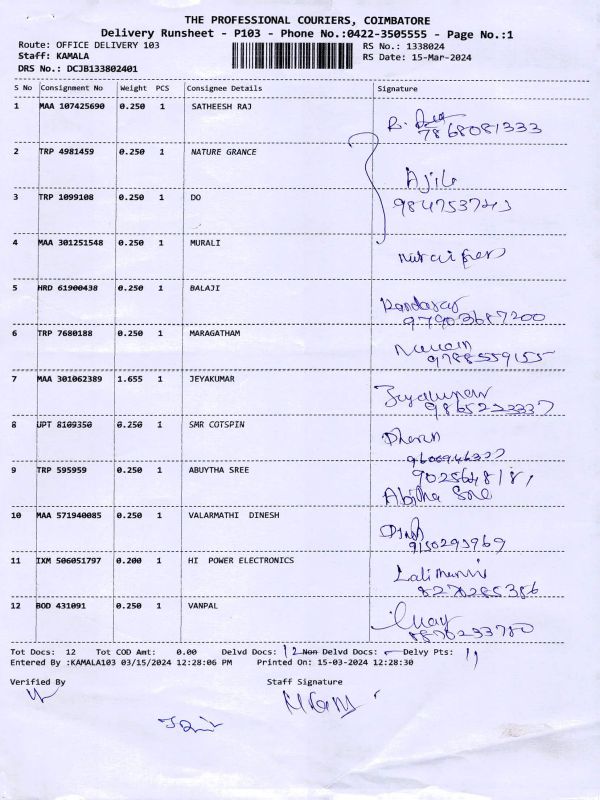 THE PROFESSIONAL COURIERS, COIMBATORE
Delivery Runsheet - P103 - Phone No.:0422-3505555 - Page No.:1
Route: OFFICE DELIVERY 103 RS No.: 1338024
Staff: KAMALA RS Date: 15-Mar-2024
DRS No.: DCJB133802401
S No Consignment No Weight PCS Consignee Details Signature
1 MAA 107425690 0.250 1 SATHEESH RAJ
7868081333
2 TRP 4981459 0.250 1 NATURE GRANCE
3 TRP 1099108 0.250 1 DO
4 MAA 301251548 0.250 1 MURALI
5 HRD 61900438 0.250 1 BALAJI
97903687200
6 TRP 7680188 0.250 1 MARAGATHAM
9788559155
7 MAA 301062389 1.655 1 JEYAKUMAR
8 UPT 8109350 0.250 1 SMR COTSPIN
9 TRP 595959 0.250 1 ABUYTHA SREE
10 MAA 571940085 0.250 1 VALARMATHI DINESH
9150293969
11 IXM 506051797 0.200 1 HI POWER ELECTRONICS
8270285386
12 BOD 431091 0.250 1 VANPAL
8870233780
Tot Docs: 12 Tot COD Amt: 0.00 Delvd Docs: 12 Non Delvd Docs: Delvy Pts: 11
Entered By :KAMALA103 03/15/2024 12:28:06 PM Printed On: 15-03-2024 12:28:30
Verified By Staff Signature